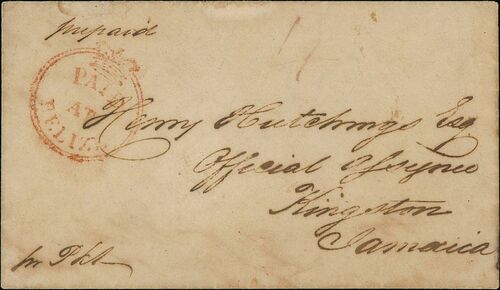 prepaid
1/
PAID
AT
BELIZE
Henry Hutchings Esq
Official Assignee
Kingston
Jamaica
pr Pkt